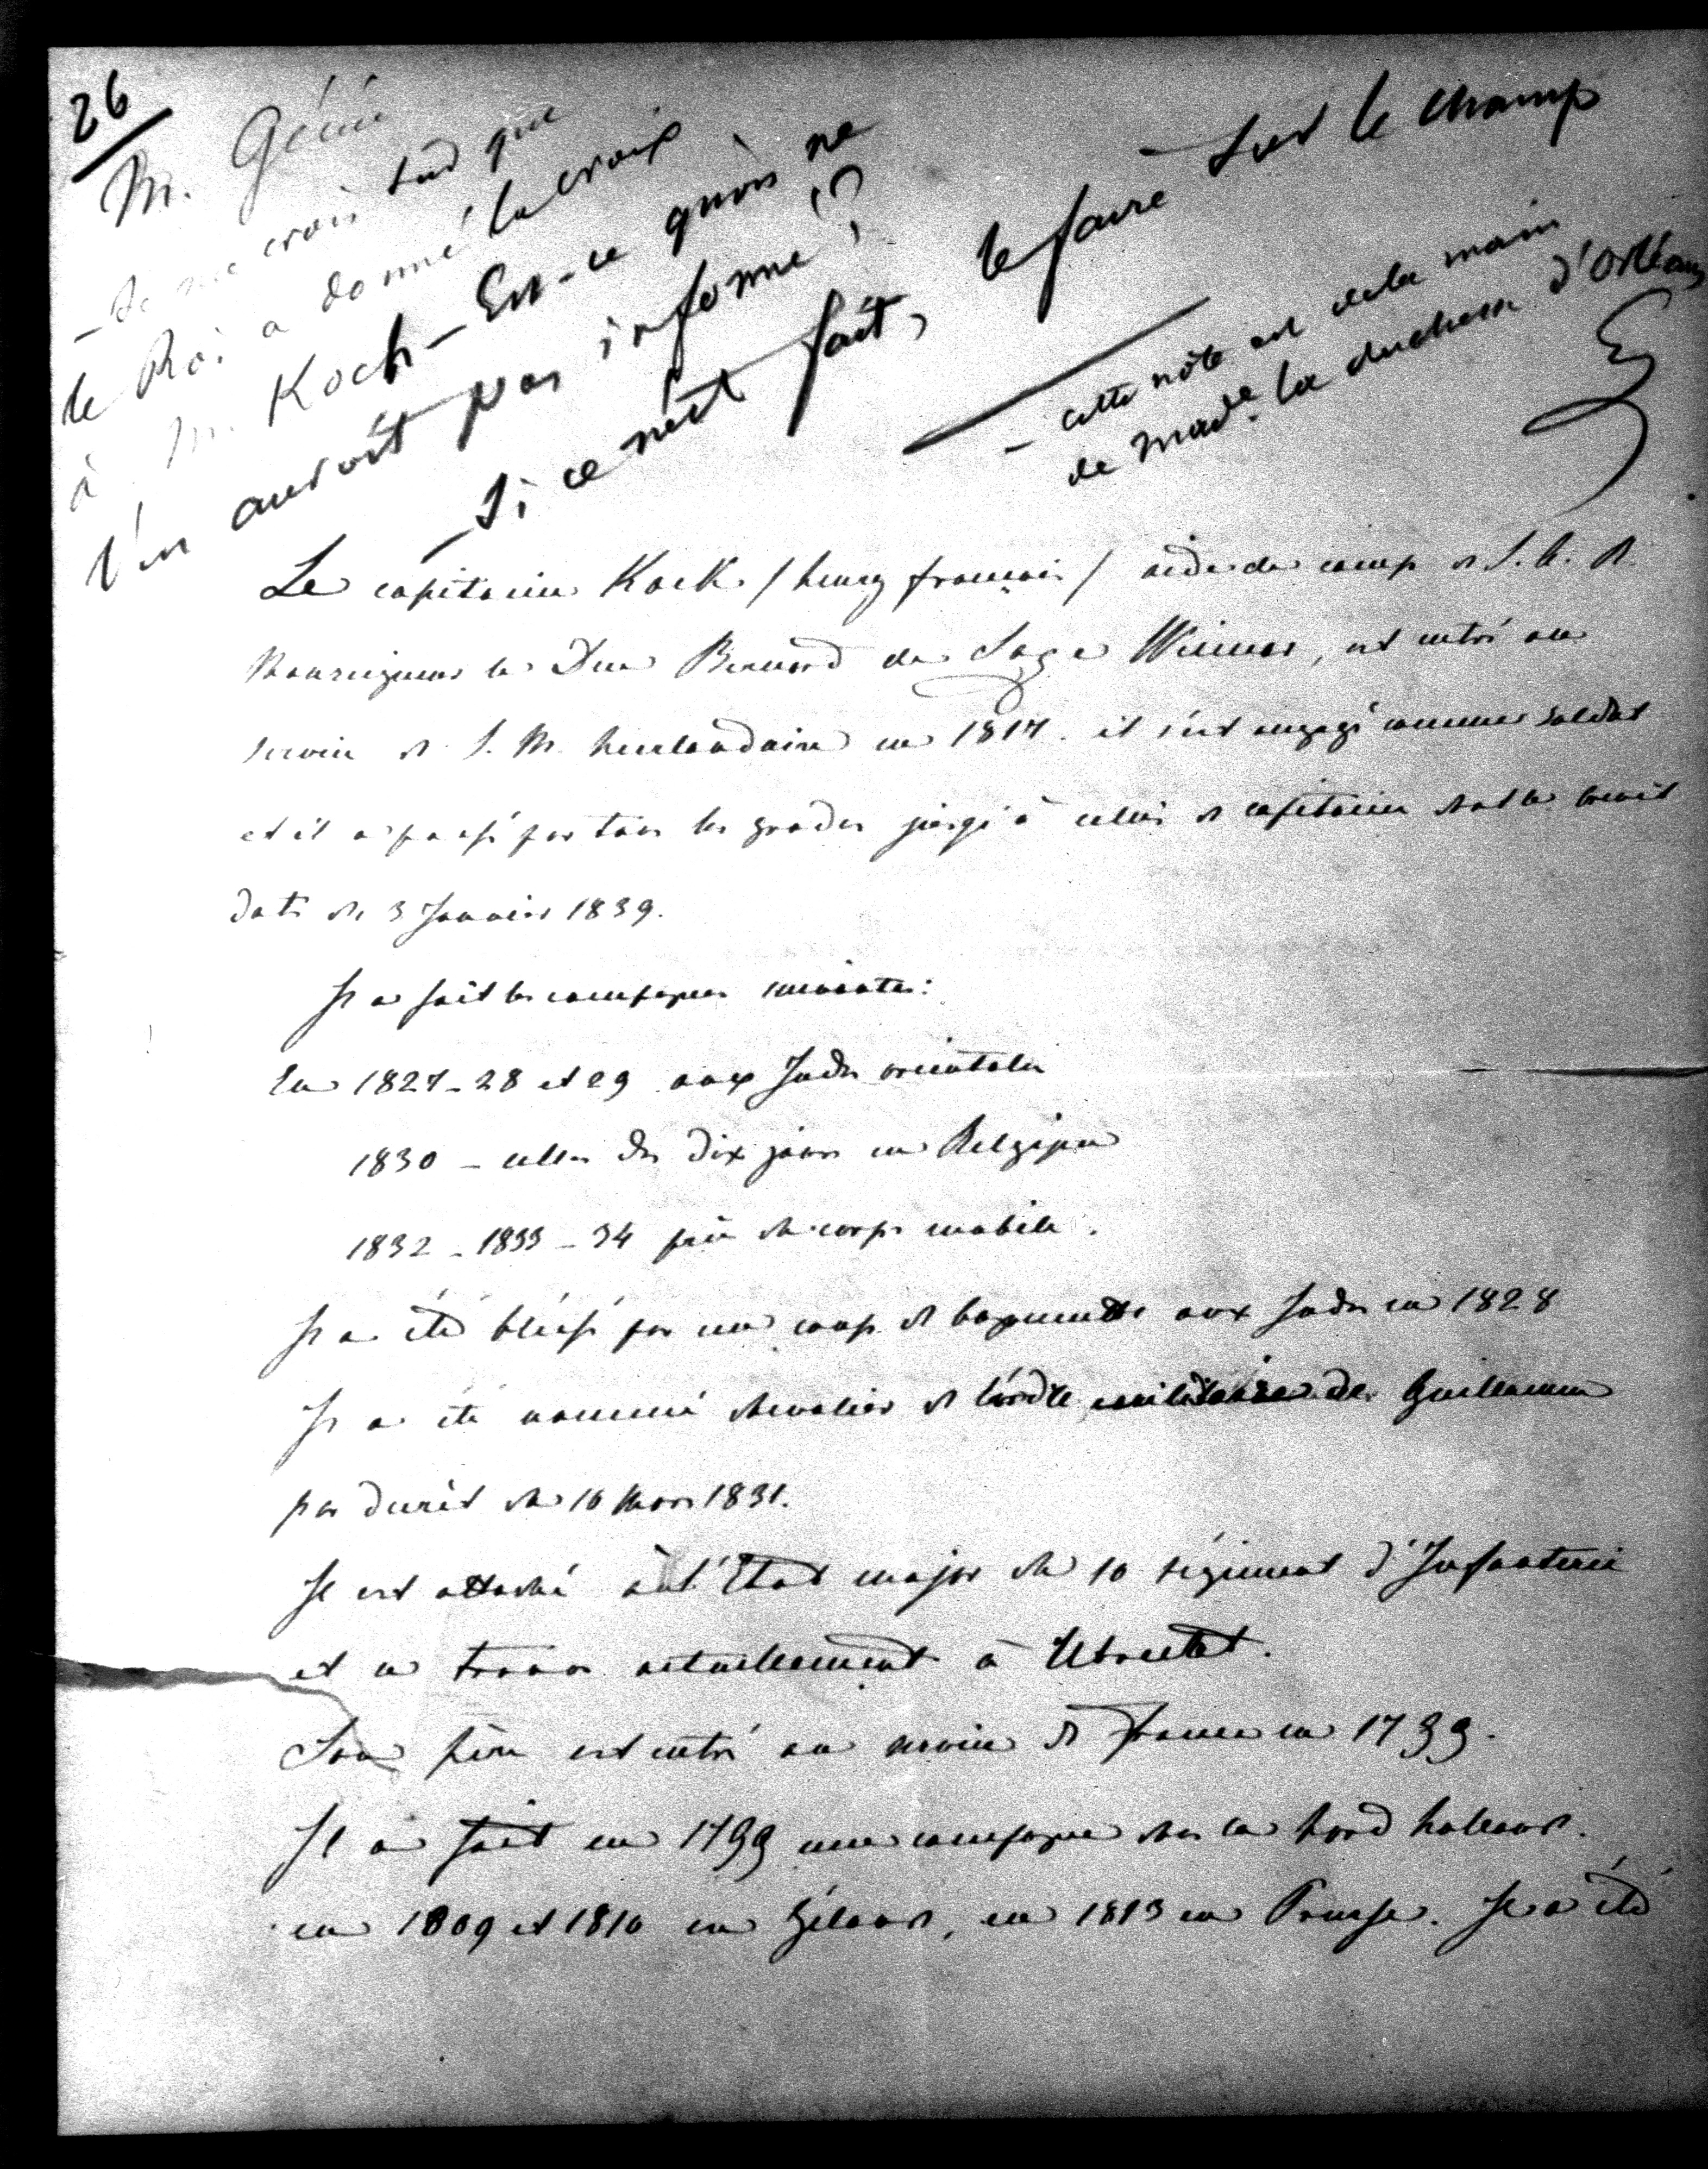 26
M. Génie
— Je me crois sûr que
le Roi a donné la croix
à M. Koch — Est-ce qu'on ne
l'en auroit pas informé ?
— Si ce n'est fait, le faire sur le champ
— cette note est de la main
de Made. la duchesse d'Orléans
Le capitaine Kock / henry françois / aide de camp de S. A. R.
Monseigneur le Duc Bernard de Saxe Weimar, est entré au
service de S. M. Neerlandaise en 1817. il s'est engagé comme soldat
et il a passé par tous les grades jusqu'à celui de capitaine dont le brevet
date du 3 Janvier 1839.
Il a fait les campagnes suivantes:
En 1827-28 et 29 aux Indes orientales
1830 — celles des dix jours en Belgique
1832 - 1833 - 34 du corps mobile.
Il a été blessé par un coup de bayonette aux Indes en 1828
Il a été nommé chevalier de l'ordre militaire de Guillaume
par decret du 16 Mars 1831.
Il est attaché à l'Etat major du 10 régiment d'Infanterie
et se trouve actuellement à Utrecht.
Son père est entré au service de France en 1799.
Il a fait en 1799 une campagne dans la Nord hollande.
en 1809 et 1810 en Zélande, en 1813 en Prusse. Il a été